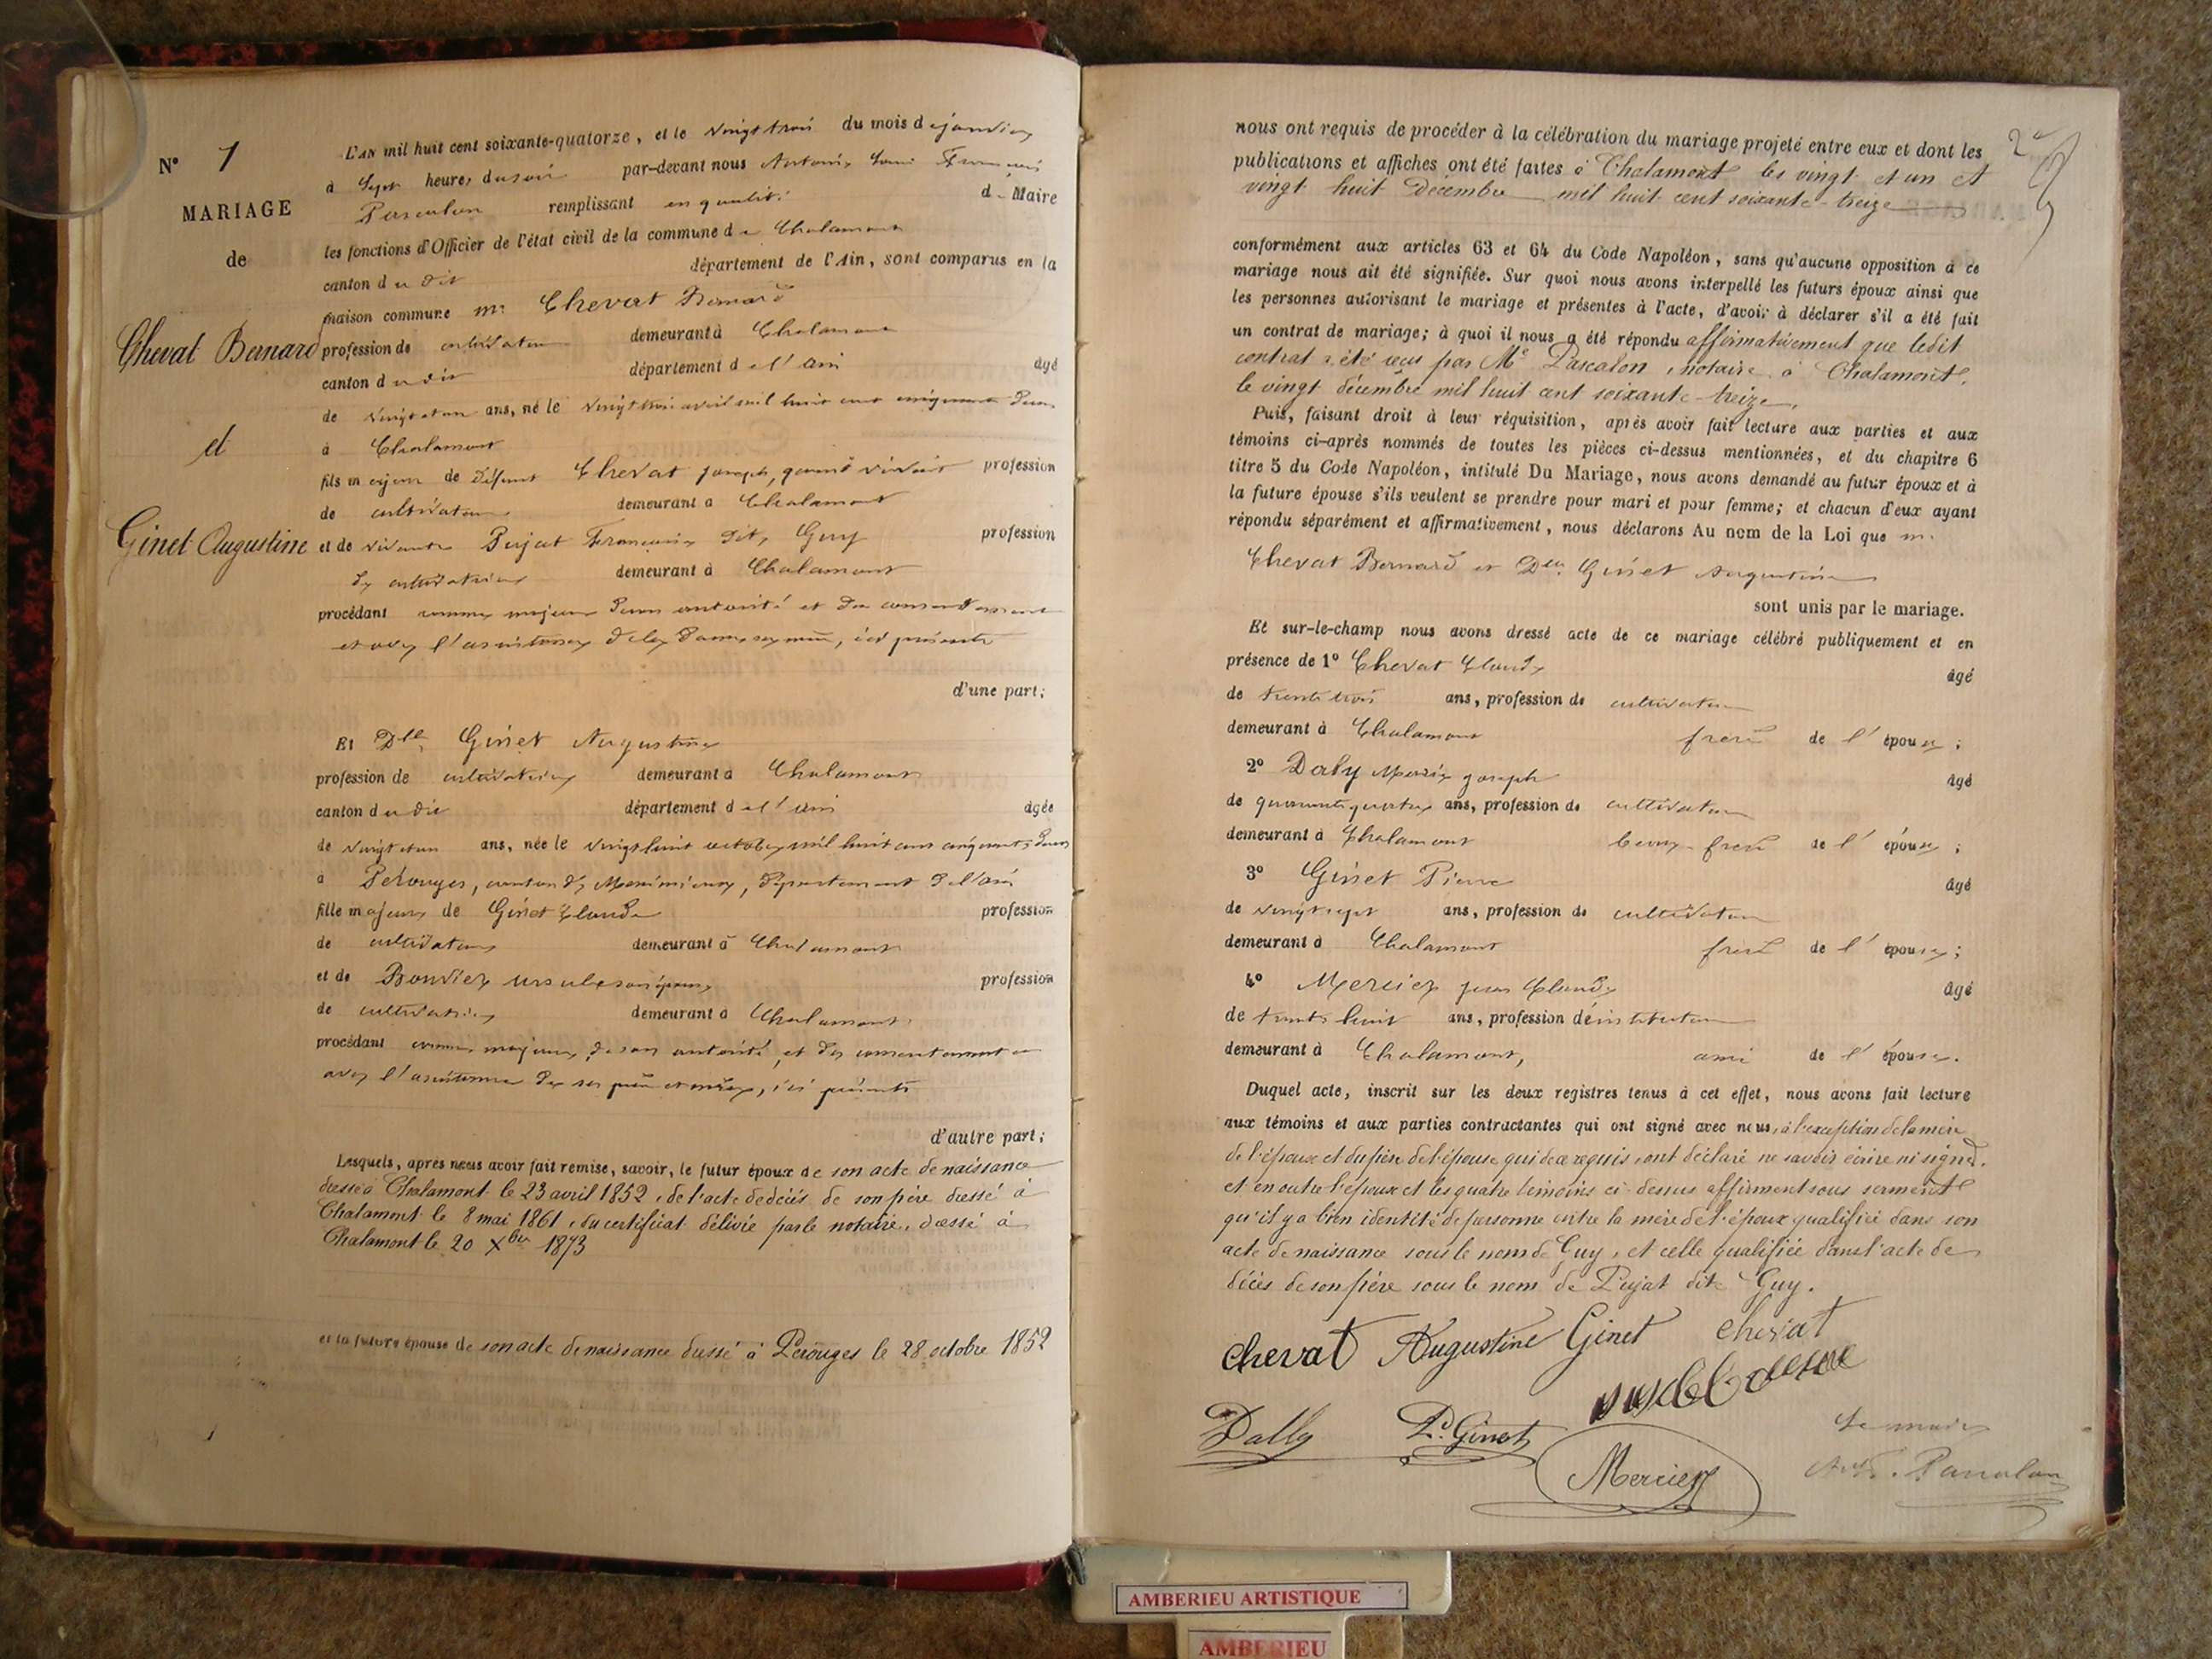 N° 1
MARIAGE
de
Chevat Bernard
et
Ginet Augustine
L'AN mil huit cent soixante-quatorze, et le vingt trois du mois de janvier
à sept heures du soir par-devant nous Antoine Louis François
Pascalon remplissant en qualité de Maire
les fonctions d'Officier de l'état civil de la commune de Chalamont
canton du dit département de l'Ain, sont comparus en la
maison commune mr Chevat Bernard
profession de cultivateur demeurant à Chalamont
canton du dit département de l'ain âgé
de vingt et un ans, né le vingt trois avril mil huit cent cinquante deux
à Chalamont
fils majeur de défunt Chevat joseph, quand vivait profession
de cultivateur demeurant à Chalamont
et de vivante Pujat Françoise dite Guy profession
de cultivatrice demeurant à Chalamont
procédant comme majeur de son autorité et du consentement
et avec l'assistance de la dame sa mère, ici présente
d'une part;
Et Dlle Ginet Augustine
profession de cultivatrice demeurant à Chalamont
canton du dit département de l'ain âgée
de vingt et un ans, née le vingt huit octobre mil huit cent cinquante deux
à Pérouges, canton de Meximieux, département de l'ain
fille majeure de Ginet Claude profession
de cultivateur demeurant à Chalamont
et de Bouvier ursule son épouse profession
de cultivatrice demeurant à Chalamont
procédant comme majeure, de son autorité, et du consentement et
avec l'assistance de ses père et mère, ici présents
d'autre part;
Lesquels, après nous avoir fait remise, savoir, le futur époux de son acte de naissance
dressé à Chalamont le 23 avril 1852, de l'acte de décès de son père dressé à
Chalamont le 8 mai 1861, du certificat délivré par le notaire, dressé à
Chalamont le 20 Xbre 1873
et la future épouse de son acte de naissance dressé à Pérouges le 28 octobre 1852
nous ont requis de procéder à la célébration du mariage projeté entre eux et dont les
publications et affiches ont été faites à Chalamont les vingt et un et
vingt huit Décembre mil huit cent soixante-treize
conformément aux articles 63 et 64 du Code Napoléon, sans qu'aucune opposition à ce
mariage nous ait été signifiée. Sur quoi nous avons interpellé les futurs époux ainsi que
les personnes autorisant le mariage et présentes à l'acte, d'avoir à déclarer s'il a été fait
un contrat de mariage; à quoi il nous a été répondu affirmativement que ledit
contrat a été reçu par Me Pascalon, notaire à Chalamont,
le vingt décembre mil huit cent soixante-treize.
Puis, faisant droit à leur réquisition, après avoir fait lecture aux parties et aux
témoins ci-après nommés de toutes les pièces ci-dessus mentionnées, et du chapitre 6
titre 5 du Code Napoléon, intitulé Du Mariage, nous avons demandé au futur époux et à
la future épouse s'ils veulent se prendre pour mari et pour femme; et chacun d'eux ayant
répondu séparément et affirmativement, nous déclarons Au nom de la Loi que mr
Chevat Bernard et Dlle Ginet Augustine
sont unis par le mariage.
Et sur-le-champ nous avons dressé acte de ce mariage célébré publiquement et en
présence de 1° Chevat Claude âgé
de trente trois ans, profession de cultivateur
demeurant à Chalamont frère de l'époux;
2° Daly Marie joseph âgé
de quarante quatre ans, profession de cultivateur
demeurant à Chalamont beau-frère de l'époux;
3° Ginet Pierre âgé
de vingt sept ans, profession de cultivateur
demeurant à Chalamont frère de l'épouse;
4° Mercier jean Claude âgé
de trente huit ans, profession d'instituteur
demeurant à Chalamont, ami de l'épouse.
Duquel acte, inscrit sur les deux registres tenus à cet effet, nous avons fait lecture
aux témoins et aux parties contractantes qui ont signé avec nous, à l'exception de la mère
de l'époux et du père de l'épouse qui de ce requis, ont déclaré ne savoir écrire ni signer.
et en outre l'époux et les quatre témoins ci-dessus affirment sous serment
qu'il y a bien identité de personne entre la mère de l'époux qualifiée dans son
acte de naissance sous le nom de Guy, et celle qualifiée dans l'acte de
décès de son père sous le nom de Pujat dite Guy.
chevat Augustine Ginet chevat
Dally P. Ginet
Mercier
Le maire
Pascalon
AMBERIEU ARTISTIQUE
AMBERIEU